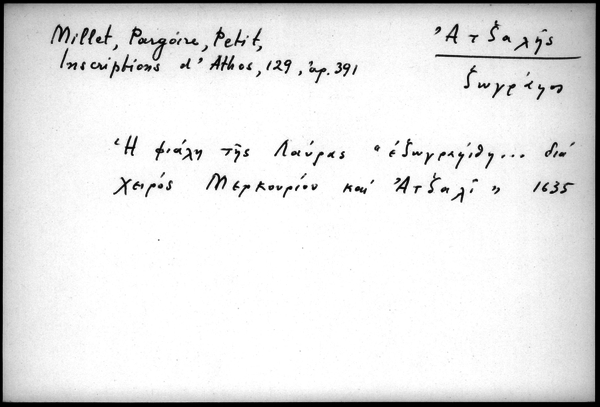 Millet, Pargoire, Petit,
Inscriptions d' Athos, 129, ἀρ. 391
Ἀτζαλῆς
ζωγράφος
Ἡ φιάλη τῆς Λαύρας "ἐζωγραφίθη... διά
χειρός Μερκουρίου καί Ἀτζαλῖ" 1635